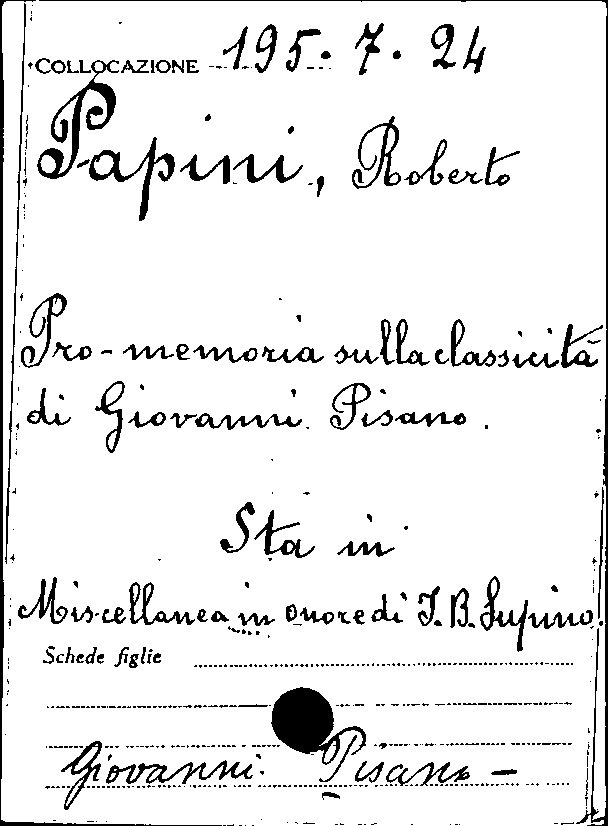 COLLOCAZIONE 195.7.24
Papini, Roberto
Pro-memoria sulla classicità
di Giovanni Pisano.
Sta in
Miscellanea in onore di I. B. Supino.
Schede figlie
Giovanni Pisano -